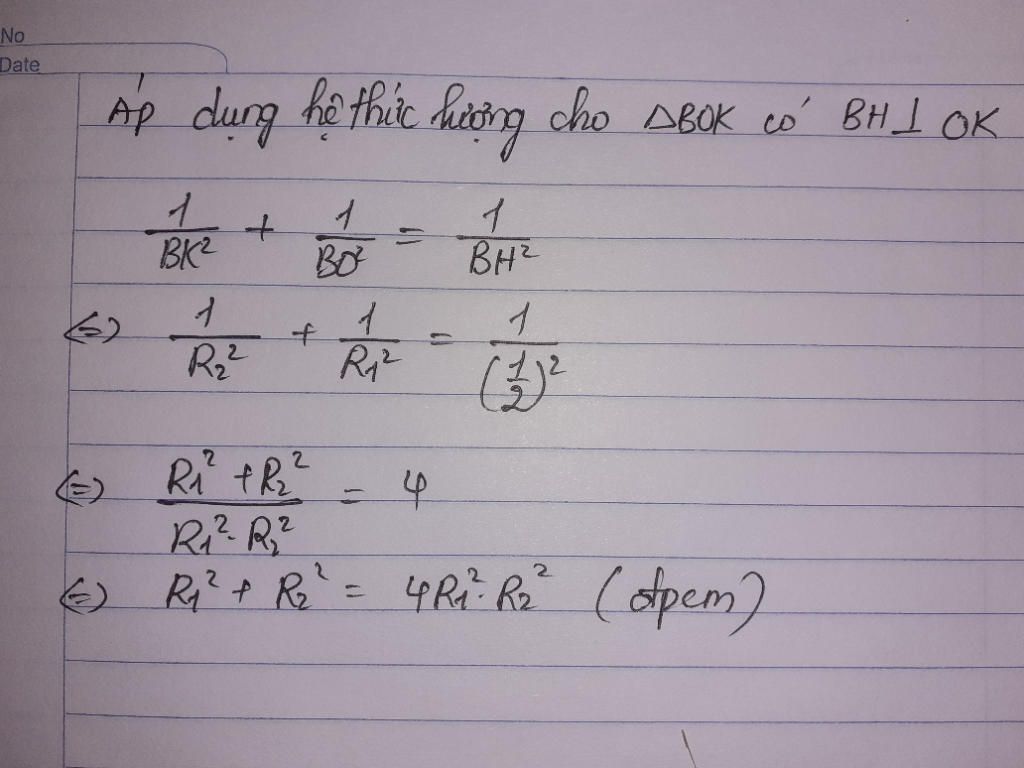 No
Date
Áp dụng hệ thức lượng cho ΔBOK có BH ⊥ OK
1/BK² + 1/BO² = 1/BH²
⇔ 1/R₂² + 1/R₁² = 1/(1/2)²
⇔ (R₁² + R₂²)/(R₁² . R₂²) = 4
⇔ R₁² + R₂² = 4R₁² . R₂² (đpcm)